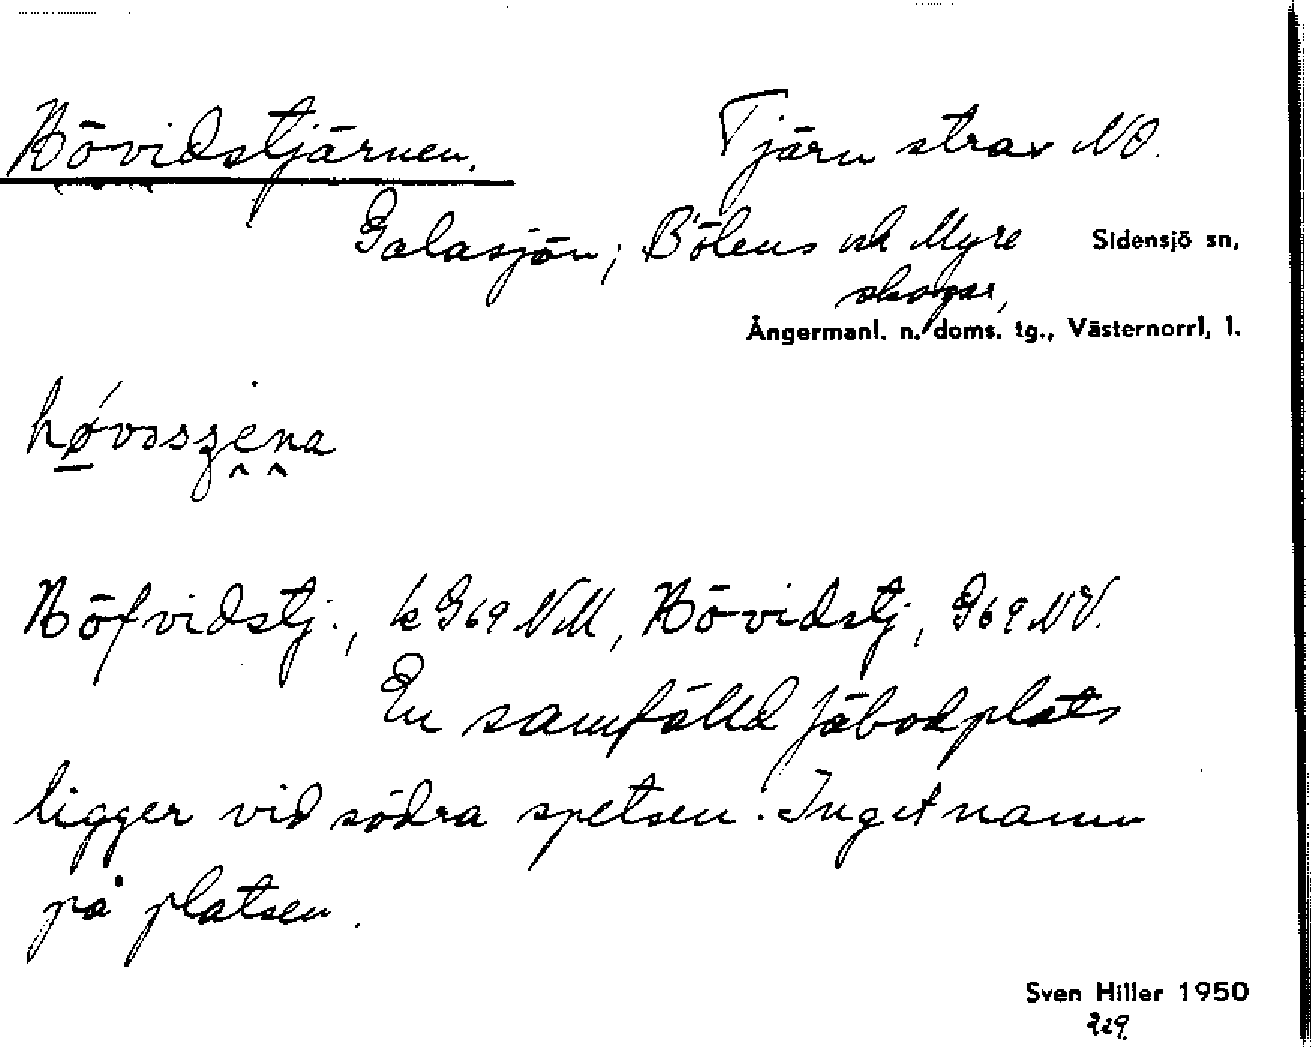 Hövidstjärnen. Tjärn strax NO.
Galasjön; Bölens och Myre Sidensjö sn,
skogar,
Ångermanl. n. doms. tg., Västernorrl, l.
Höfvidstj., k G69 NM, Hövidstj, G69 NV.
En samfälld fäbodplats
ligger vid södra spetsen. Inget namn
på platsen.
Sven Hiller 1950
229.